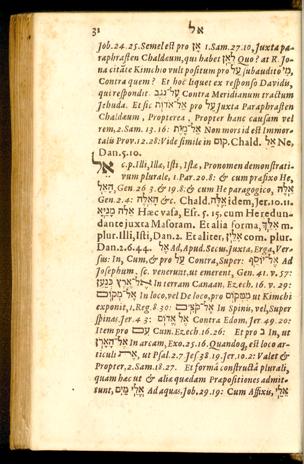 31 אל
Job. 24. 25. Semel est pro אַיִן 1. Sam. 27. 10, Juxta pa-
raphrasten Chaldeum, qui habet לְאָן Quo? at R. Jo-
na citāte Kimchio vult positum pro עַל subaudito מִי,
Contra quem? Et hoc liquet ex responso Davidis,
qui respondit עַל־נֶגֶב Contra Meridianum tractum
Jehuda. Et sic אֶל־אֹדוֹת pro עַל Juxta Paraphrasten
Chaldeum, Propterea, Propter hanc causam vel
rem, 2. Sam. 13. 16: אַל־מָוֶת Non mors id est Immor-
talis Prov. 12. 28: Vide simile in קוּם. Chald. אַל Ne,
Dan. 5. 10.
אֵל c. p. Illi, Illa, Isti, Ista, Pronomen demonstrati-
vum plurale, 1. Par. 20. 8: & cum præfixo He,
הָאֵל, Gen. 26. 3. & 19. 8: & cum He paragogico, אֵלֶּה
Gen. 2. 4: הָאֵלֶּה &c. Chald. אֵלֶּה idem, Jer. 10. 11.
אֵלֶּה מָנַיָּא Hæc vasa, Esr. 5. 15. cum He redun-
dante juxta Masoram. Et alia forma, אִלֵּךְ m.
plur. Illi, Isti, Dan. 2. Et aliter, אִלֵּין com. plur.
Dan. 2. 6. 44. אֶל Ad, Apud. Secus, Juxta, Erga, Ver-
sus: In, Cum, & pro עַל Contra, Super: אֶל־יוֹסֵף Ad
Josephum, sc. venerunt, ut emerent, Gen. 41. v. 57:
אֶל־אֶרֶץ כְּנַעַן In terram Canaan. Ezech. 16. v. 29:
אֶל־מְקוֹם In loco, vel De loco, pro מִמְּקוֹם ut Kimchi
exponit, 1. Reg. 8. 30: אֶל־קֹצִים In Spinis, vel, Super
spinas. Jer. 4. 3: אֶל־אֱדוֹם Contra Edom. Jer. 49. 20:
Item pro עִם Cum. Ezech. 16. 26: Et pro ב In, ut
אֶל־הָאָרֹן In arcam, Exo. 25. 16. Quandoq, est loco ar-
ticuli אֶת, ut Psal. 2. 7 Jes 38. 19. Jer. 10. 2: Valet &
Propter, 2. Sam. 18. 27. Et formā constructā plurali,
quam hæc ut & aliæ quædam Præpositiones admit-
tunt, אֱלֵי מַיִם Ad aquas, Job. 29. 19: Cum Affixis, אֵלַי